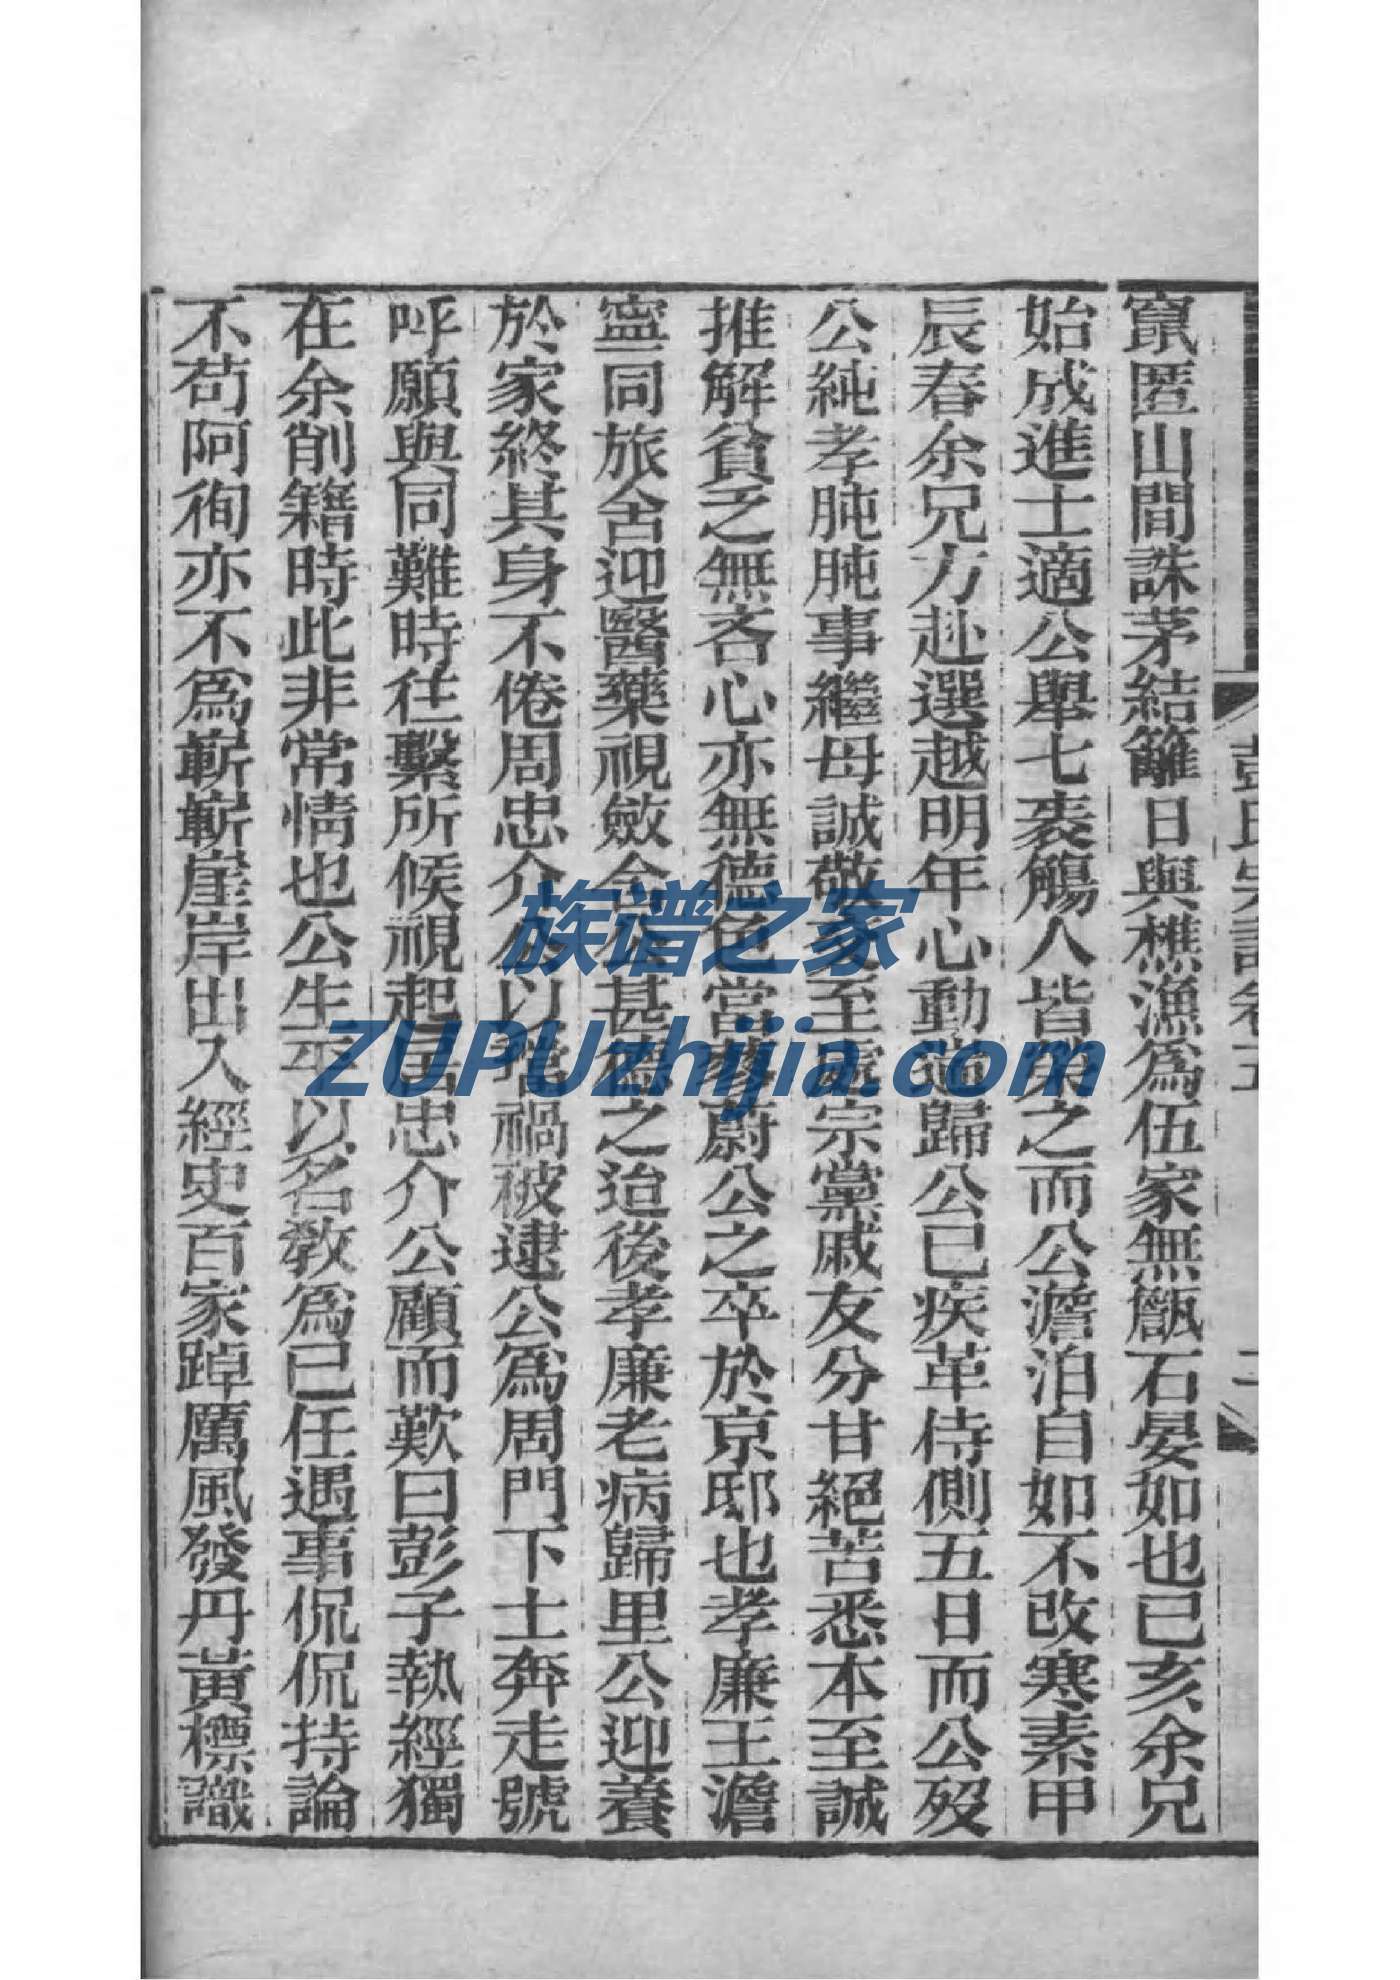 竄匿山間誅茅結籬日與樵漁爲伍家無甔石晏如也已亥余兄
始成進士適公舉七袠觴人皆榮之而公澹泊自如不改寒素甲
辰春余兄方赴選越明年心動遄歸公已疾革侍側五日而公歿
公純孝肫肫事繼母誠敬至處宗黨戚友分甘絕苦悉本至誠
推解貧乏無吝心亦無德色當蔚公之卒於京邸也孝廉王澹
寧同旅舍迎醫藥視斂含公甚德之迨後孝廉老病歸里公迎養
於家終其身不倦周忠介公以禍被逮公爲周門下士奔走號
呼願與同難時往繫所候視起居忠介公顧而歎曰彭子執經獨
在余削籍時此非常情也公生平以名敎爲已任遇事侃侃持論
不苟阿徇亦不爲嶄嶄崖岸出入經史百家踔厲風發丹黃標識
彭氏宗譜卷五
二
族谱之家
ZUPUzhijia.com